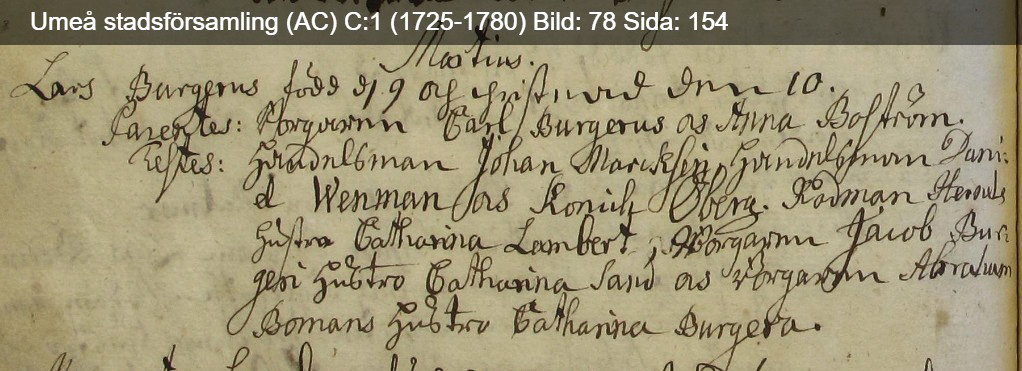 Umeå stadsförsamling (AC) C:1 (1725-1780) Bild: 78 Sida: 154
Martius.
Lars Burgerus född d 9 och christnad den 10.
Parentes: Borgaren Carl Burgerus os Anna Boström.
Testes: Handelsman Johan Handelsman Dani-
el Wenman os Öberg. Rådman
Hustro Catharina Lambert, Borgaren Jacob Bur-
geri Hustro Catharina Sand os Borgaren Abraham
Bomans Hustro Catharina Burgera.